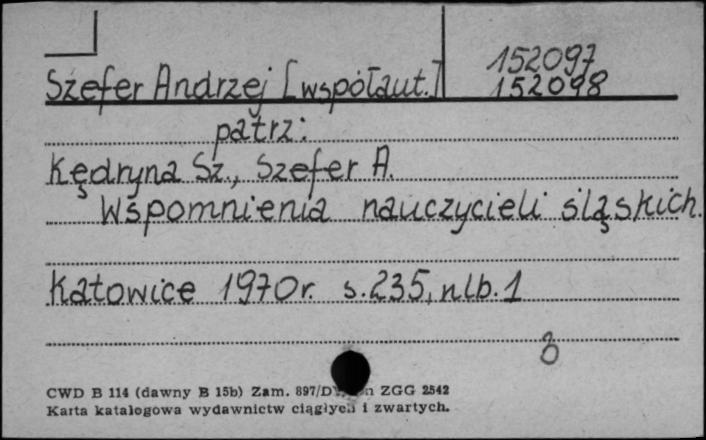 152097
Szefer Andrzej [współaut.] 152098
patrz:
Kędryna Sz., Szefer A.
Wspomnienia nauczycieli śląskich.
Katowice 1970r. s.235, nlb.1
CWD B 114 (dawny B 15b) Zam. 897/D ZGG 2542
Karta katalogowa wydawnictw ciągłych i zwartych.